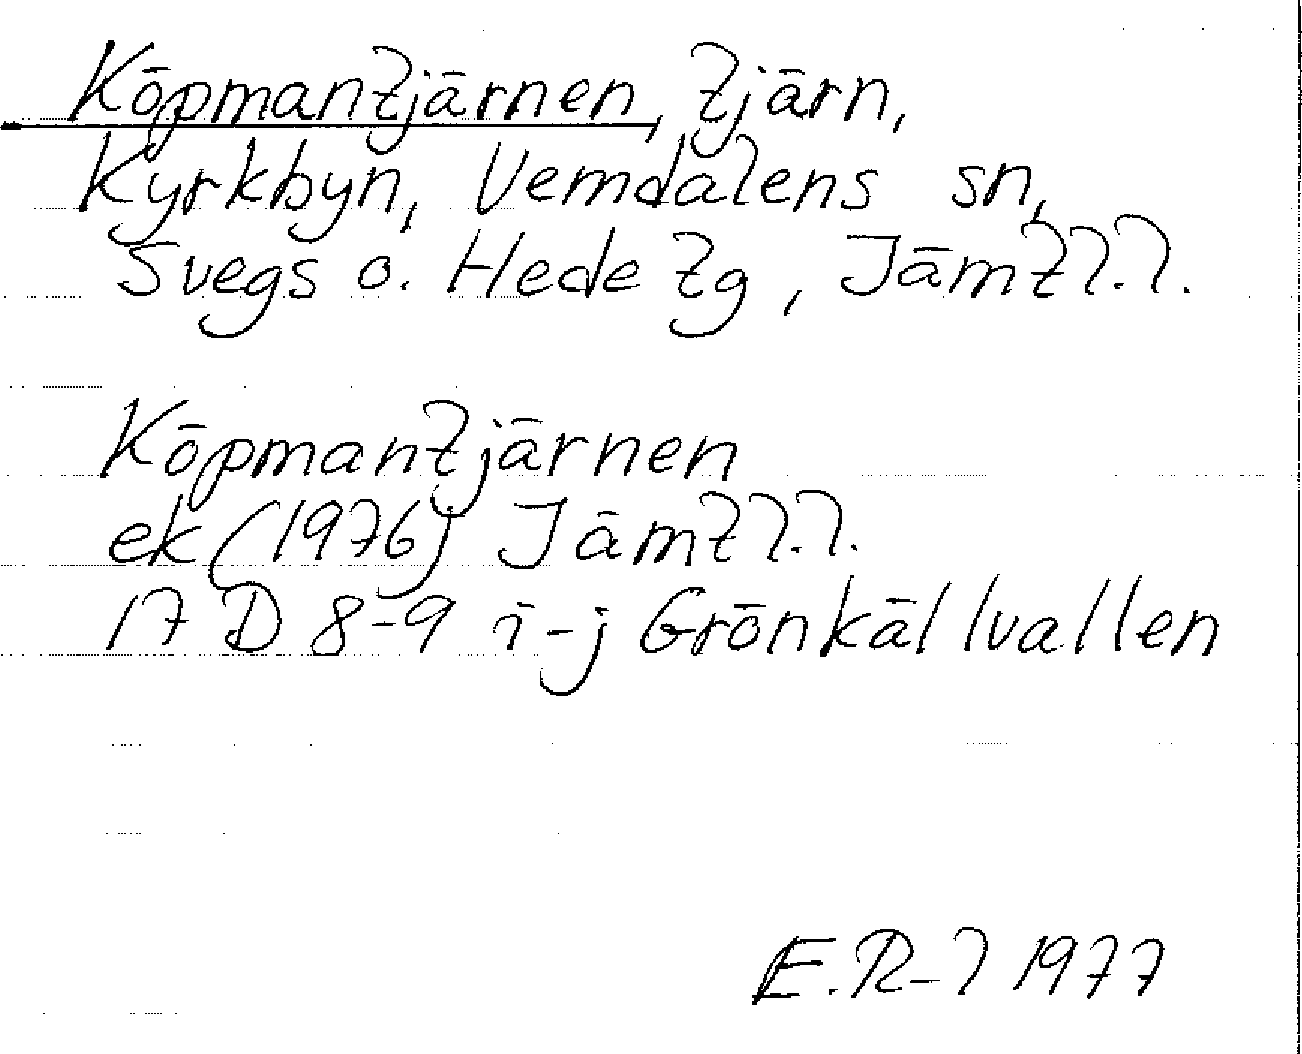 Köpmantjärnen, tjärn,
Kyrkbyn, Vemdalens sn,
Svegs o. Hede tg, Jämtl.l.
Köpmantjärnen
ek (1976) Jämtl.l.
17 D 8-9 i-j Grönkällvallen
E.R-l 1977